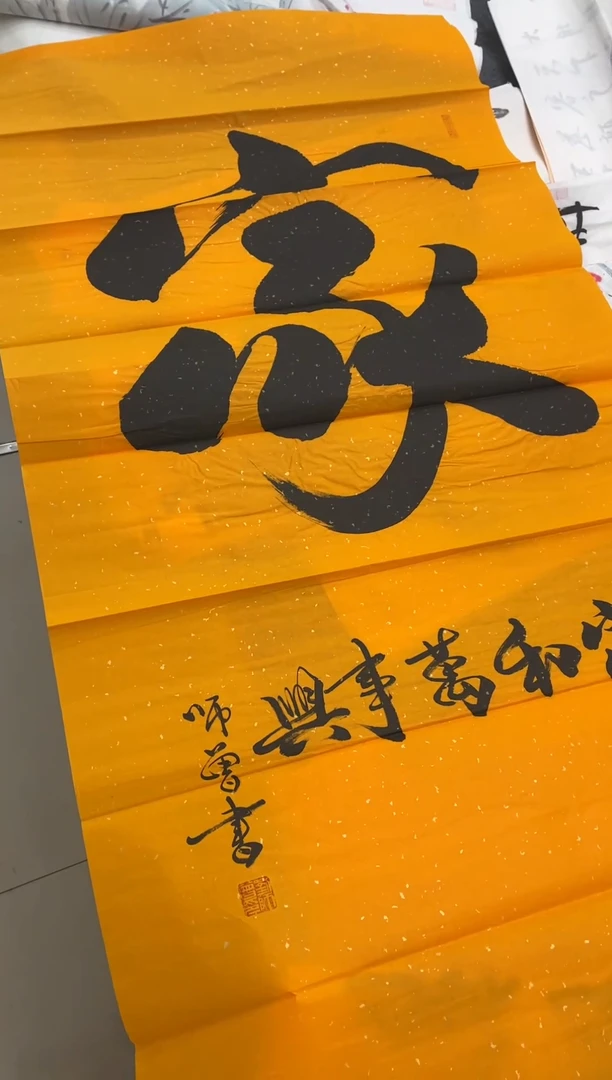 家
家和萬事興
師曾書